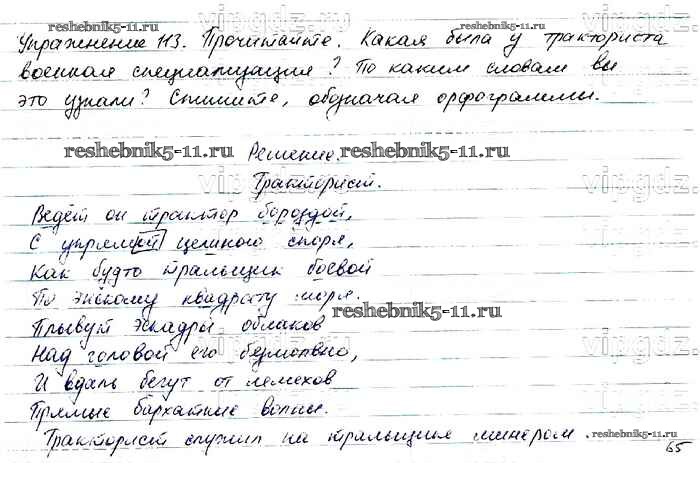 reshebnik5-11.ru
vipgdz.
Упражнение 113. Прочитайте. Какая была у тракториста
военная специализация? По каким словам вы
это узнали? Спишите, обозначая орфограммы.
reshebnik5-11.ru Решение. reshebnik5-11.ru
vipgdz. vipgdz.
Тракторист.
Ведёт он трактор бороздой,
С упрямой целиною споря,
Как будто тральщик боевой
По энскому квадрату моря.
reshebnik5-11.ru
Плывут эскадры облаков
vipgdz. vipgdz.
Над головой его безмолвно,
И вдаль бегут от лемехов
Прямые бархатные волны.
Тракторист служил на тральщике минёром. reshebnik5-11.ru
65